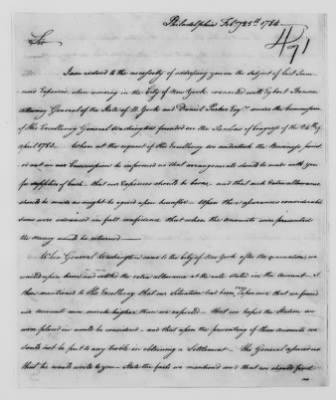 Philadelphia Feby 25th 1784
471
Sir
I am reduced to the necessity of addressing you on the subject of last Sum-
mers Expences, when serving in the City of New York connected with Egbert Benson
Attorney General of the State of N. York and Daniel Parker Esqrs. under the Commission
of His Excellency General Washington founded on the Resolve of Congress of the 24th of
April 1783. When at the request of His Excellency we undertook the Business pointed
out in our Commission he informed us that arrangements should be made with you
for supplies of Cash that our Expences should be borne and that such extra allowance
should be made as might be agreed upon hereafter. Upon these assurances considerable
sums were advanced in full confidence that when the accounts were presented
the money would be returned
When General Washington came to the City of New York after the evacuation, we
waited upon him and settled the extra allowance at the rate stated in the account. I
then mentioned to His Excellency that our Situation had been expensive that we found
our account were much higher than we expected that we hoped the Station we
were placed in would be considered and that upon the presenting of these accounts we
should not be put to any trouble in obtaining a Settlement. The General assured us
that he would write to you State the facts we mentioned and that we should find
no